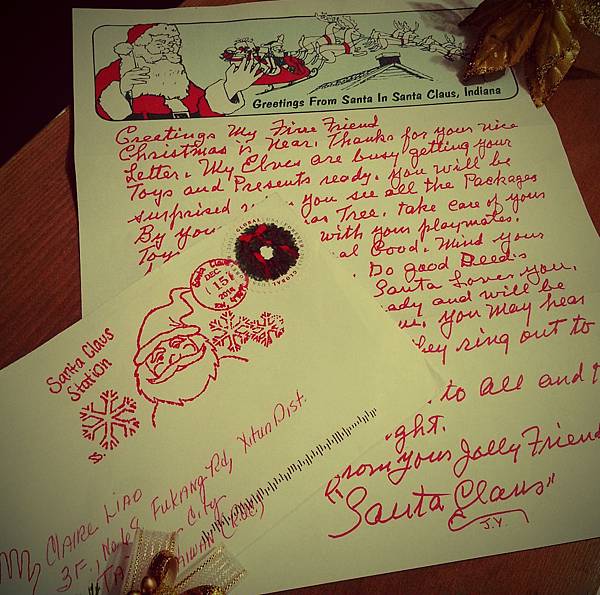 Greetings From Santa In Santa Claus, Indiana
Greetings My Fine Friend
Christmas is Near. Thanks for your nice
Letter. My Elves are busy getting your
Toys and Presents ready. You will be
surprised you see all the Packages
By you Tree. Take care of your
Toy with your playmates.
Good. Mind your
Do good Deeds
Santa Loves you.
and will be
you may hear
they ring out to
to All and
From your Jolly Friend
"Santa Claus"
J.Y.
GLOBAL
Santa Claus
DEC
15
2014
Santa Claus
Station
Claire Liao
3F, No68 Fukang Rd, Xitun Dist.
City
Taiwan (R.O.C.)